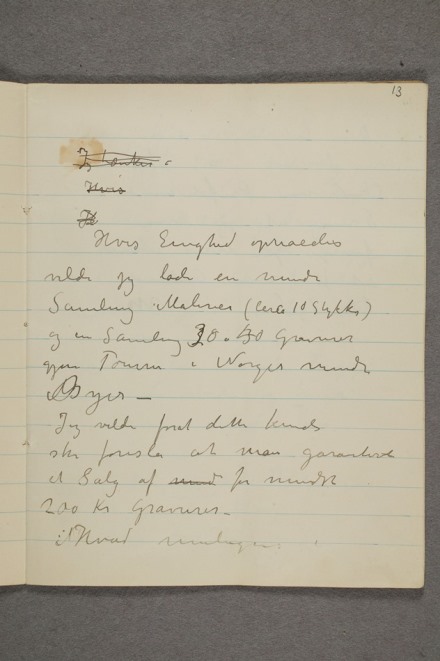 13
Jeg tænker
Hvis
Je
Hvis Enighed opnaaedes
vilde jeg lade en mindre
Samling Malerier (Circa 10 Stykker)
og en Samling 30 a 40 Gravurer
gjøre Tourne i Norges mindre
Byer —
Jeg vilde forat dette kunde
ske foreslaa at man garanterede
et Salg af mind for mindst
200 Kr Gravurer —
Hvad